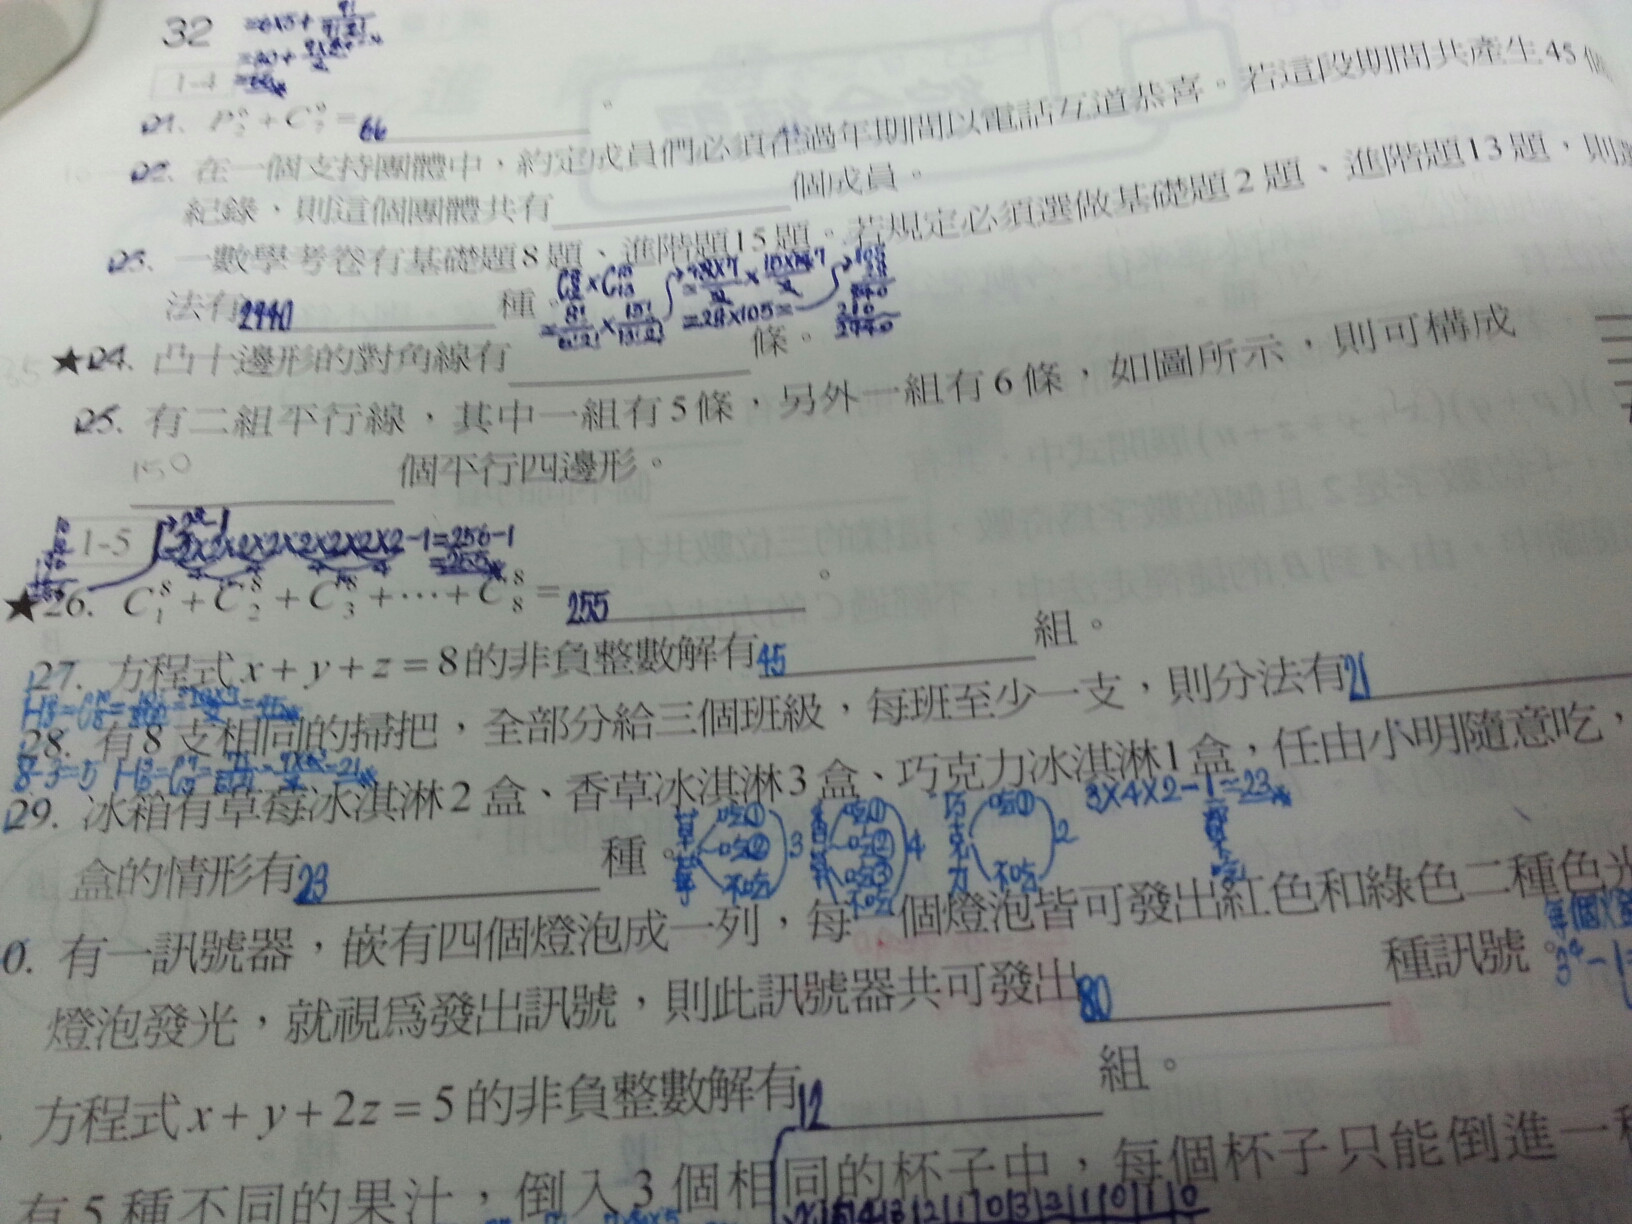 32
1-4
21. P + C = 66 。
22. 在一個支持團體中，約定成員們必須在過年期間以電話互道恭喜。若這段期間共產生45個
紀錄，則這個團體共有 個成員。
23. 一數學考卷有基礎題8題、進階題15題。若規定必須選做基礎題2題、進階題13題，則
法有2940 種。
=28×105=
2940
★24. 凸十邊形的對角線有 條。
25. 有二組平行線，其中一組有5條，另外一組有6條，如圖所示，則可構成
150 個平行四邊形。
1-5
=2×2×2×2×2×2×2×2-1=256-1
=255
★26. C₁⁸ + C₂⁸ + C₃⁸ + ⋯ + C₈⁸ = 255 。
27. 方程式 x + y + z = 8 的非負整數解有45 組。
28. 有8支相同的掃把，全部分給三個班級，每班至少一支，則分法有21
8-3=5
29. 冰箱有草莓冰淇淋2盒、香草冰淇淋3盒、巧克力冰淇淋1盒，任由小明隨意吃，
3×4×2-1=23
盒的情形有23 種。
草莓 吃① 吃② 不吃 3
香草 吃① 吃② 吃③ 不吃 4
巧克力 吃① 不吃 2
0. 有一訊號器，嵌有四個燈泡成一列，每一個燈泡皆可發出紅色和綠色二種色光
燈泡發光，就視為發出訊號，則此訊號器共可發出80 種訊號。
3⁴-1=
方程式 x + y + 2z = 5 的非負整數解有12 組。
有5種不同的果汁，倒入3個相同的杯子中，每個杯子只能倒進一種
x|5|4|3|2|1|0|3|2|1|0|1|0